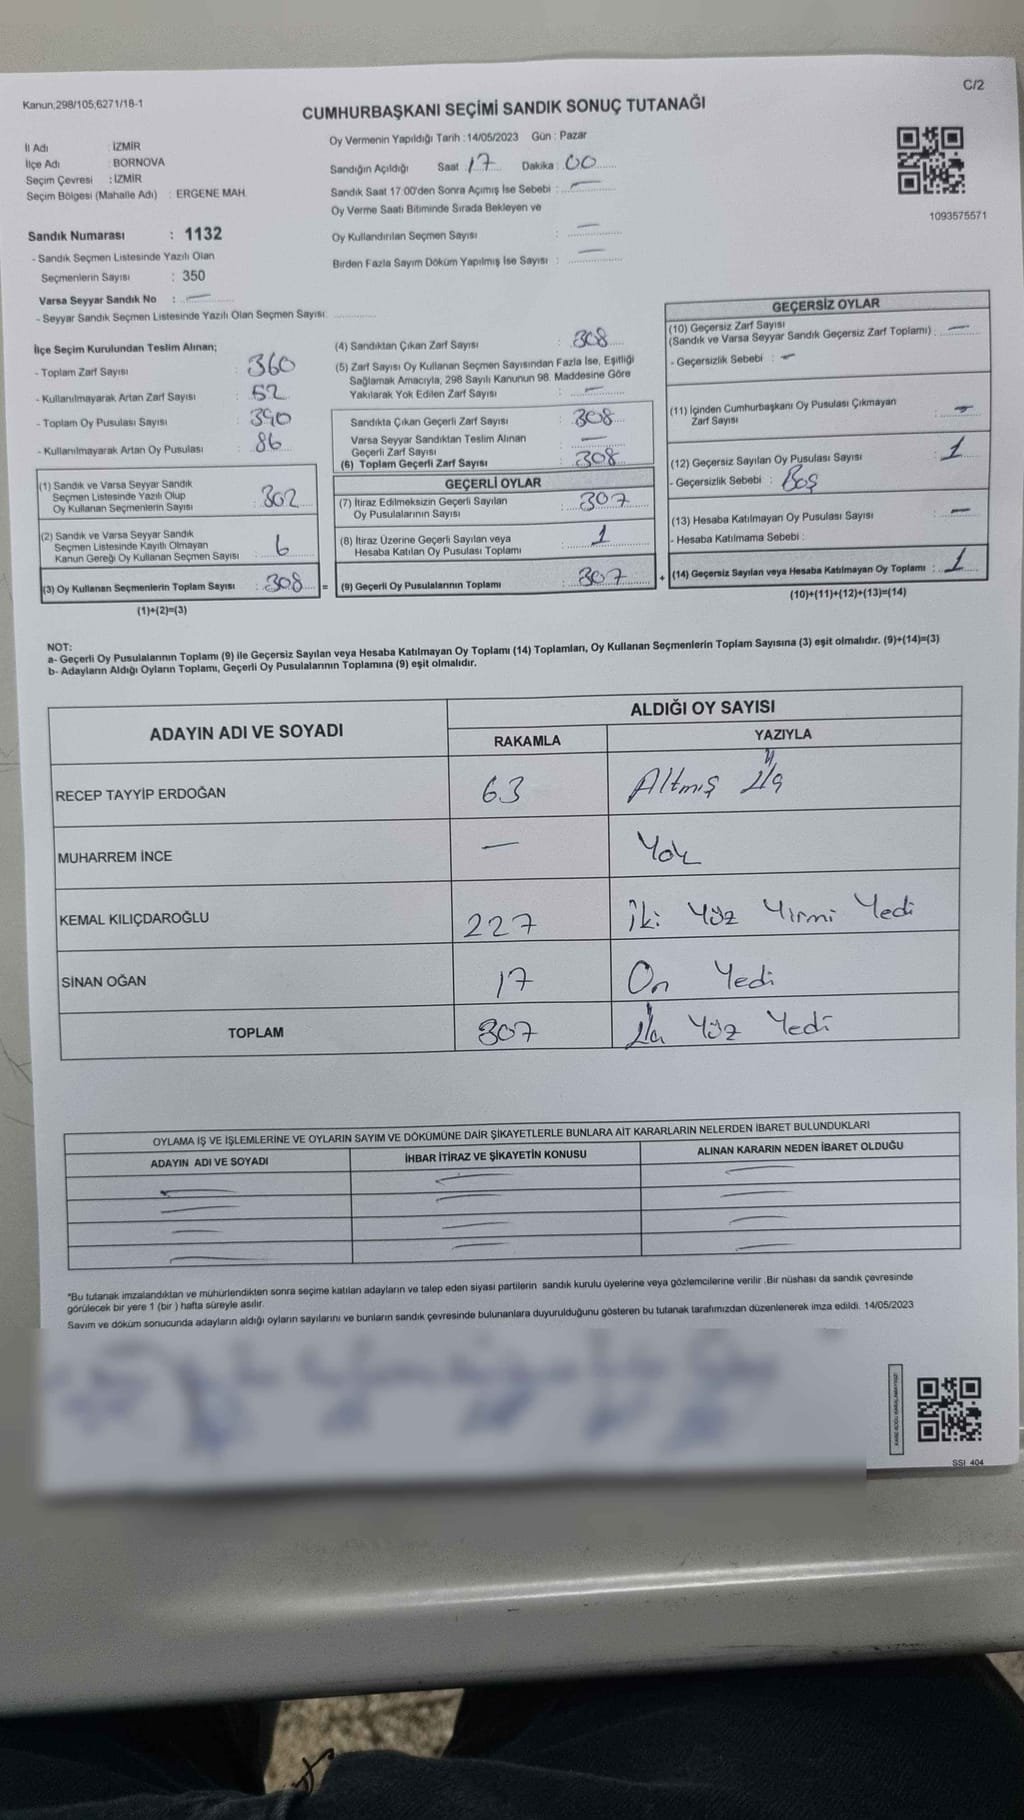 Kanun;298/105;6271/18-1
C/2
CUMHURBAŞKANI SEÇİMİ SANDIK SONUÇ TUTANAĞI
İl Adı : İZMİR
İlçe Adı : BORNOVA
Seçim Çevresi : İZMİR
Seçim Bölgesi (Mahalle Adı) : ERGENE MAH.
Oy Vermenin Yapıldığı Tarih :14/05/2023 Gün : Pazar
Sandığın Açıldığı Saat 17 Dakika : 00
Sandık Saat 17:00'den Sonra Açımış İse Sebebi : —
Oy Verme Saati Bitiminde Sırada Bekleyen ve
Oy Kullandırılan Seçmen Sayısı : —
Birden Fazla Sayım Döküm Yapılmış İse Sayısı : —
1093575571
Sandık Numarası : 1132
- Sandık Seçmen Listesinde Yazılı Olan
Seçmenlerin Sayısı : 350
Varsa Seyyar Sandık No : —
- Seyyar Sandık Seçmen Listesinde Yazılı Olan Seçmen Sayısı:
İlçe Seçim Kurulundan Teslim Alınan;
- Toplam Zarf Sayısı : 360
- Kullanılmayarak Artan Zarf Sayısı : 52
- Toplam Oy Pusulası Sayısı : 390
- Kullanılmayarak Artan Oy Pusulası : 86
(1) Sandık ve Varsa Seyyar Sandık
Seçmen Listesinde Yazılı Olup
Oy Kullanan Seçmenlerin Sayısı : 302
(2) Sandık ve Varsa Seyyar Sandık
Seçmen Listesinde Kayıtlı Olmayan
Kanun Gereği Oy Kullanan Seçmen Sayısı : 6
(3) Oy Kullanan Seçmenlerin Toplam Sayısı : 308 =
(1)+(2)=(3)
(4) Sandıktan Çıkan Zarf Sayısı : 308
(5) Zarf Sayısı Oy Kullanan Seçmen Sayısından Fazla İse, Eşitliği
Sağlamak Amacıyla, 298 Sayılı Kanunun 98. Maddesine Göre
Yakılarak Yok Edilen Zarf Sayısı : —
Sandıkta Çıkan Geçerli Zarf Sayısı : 308
Varsa Seyyar Sandıktan Teslim Alınan
Geçerli Zarf Sayısı : —
(6) Toplam Geçerli Zarf Sayısı : 308
GEÇERLİ OYLAR
(7) İtiraz Edilmeksizin Geçerli Sayılan
Oy Pusulalarının Sayısı : 307
(8) İtiraz Üzerine Geçerli Sayılan veya
Hesaba Katılan Oy Pusulası Toplamı : 1
(9) Geçerli Oy Pusulalarının Toplamı : 307 +
GEÇERSİZ OYLAR
(10) Geçersiz Zarf Sayısı
(Sandık ve Varsa Seyyar Sandık Geçersiz Zarf Toplamı) : —
- Geçersizlik Sebebi : —
(11) İçinden Cumhurbaşkanı Oy Pusulası Çıkmayan
Zarf Sayısı : —
(12) Geçersiz Sayılan Oy Pusulası Sayısı : 1
- Geçersizlik Sebebi : Boş
(13) Hesaba Katılmayan Oy Pusulası Sayısı : —
- Hesaba Katılmama Sebebi :
(14) Geçersiz Sayılan veya Hesaba Katılmayan Oy Toplamı : 1
(10)+(11)+(12)+(13)=(14)
NOT:
a- Geçerli Oy Pusulalarının Toplamı (9) ile Geçersiz Sayılan veya Hesaba Katılmayan Oy Toplamı (14) Toplamları, Oy Kullanan Seçmenlerin Toplam Sayısına (3) eşit olmalıdır. (9)+(14)=(3)
b- Adayların Aldığı Oyların Toplamı, Geçerli Oy Pusulalarının Toplamına (9) eşit olmalıdır.
ADAYIN ADI VE SOYADI
ALDIĞI OY SAYISI
RAKAMLA YAZIYLA
RECEP TAYYİP ERDOĞAN 63 Altmış Üç
MUHARREM İNCE — Yok
KEMAL KILIÇDAROĞLU 227 İki Yüz Yirmi Yedi
SİNAN OĞAN 17 On Yedi
TOPLAM 307 Üç Yüz Yedi
OYLAMA İŞ VE İŞLEMLERİNE VE OYLARIN SAYIM VE DÖKÜMÜNE DAİR ŞİKAYETLERLE BUNLARA AİT KARARLARIN NELERDEN İBARET BULUNDUKLARI
ADAYIN ADI VE SOYADI İHBAR İTİRAZ VE ŞİKAYETİN KONUSU ALINAN KARARIN NEDEN İBARET OLDUĞU
*Bu tutanak imzalandıktan ve mühürlendikten sonra seçime katılan adayların ve talep eden siyasi partilerin sandık kurulu üyelerine veya gözlemcilerine verilir .Bir nüshası da sandık çevresinde
görülecek bir yere 1 (bir ) hafta süreyle asılır.
Sayım ve döküm sonucunda adayların aldığı oyların sayılarını ve bunların sandık çevresinde bulunanlara duyurulduğunu gösteren bu tutanak tarafımızdan düzenlenerek imza edildi. 14/05/2023
SSI 404